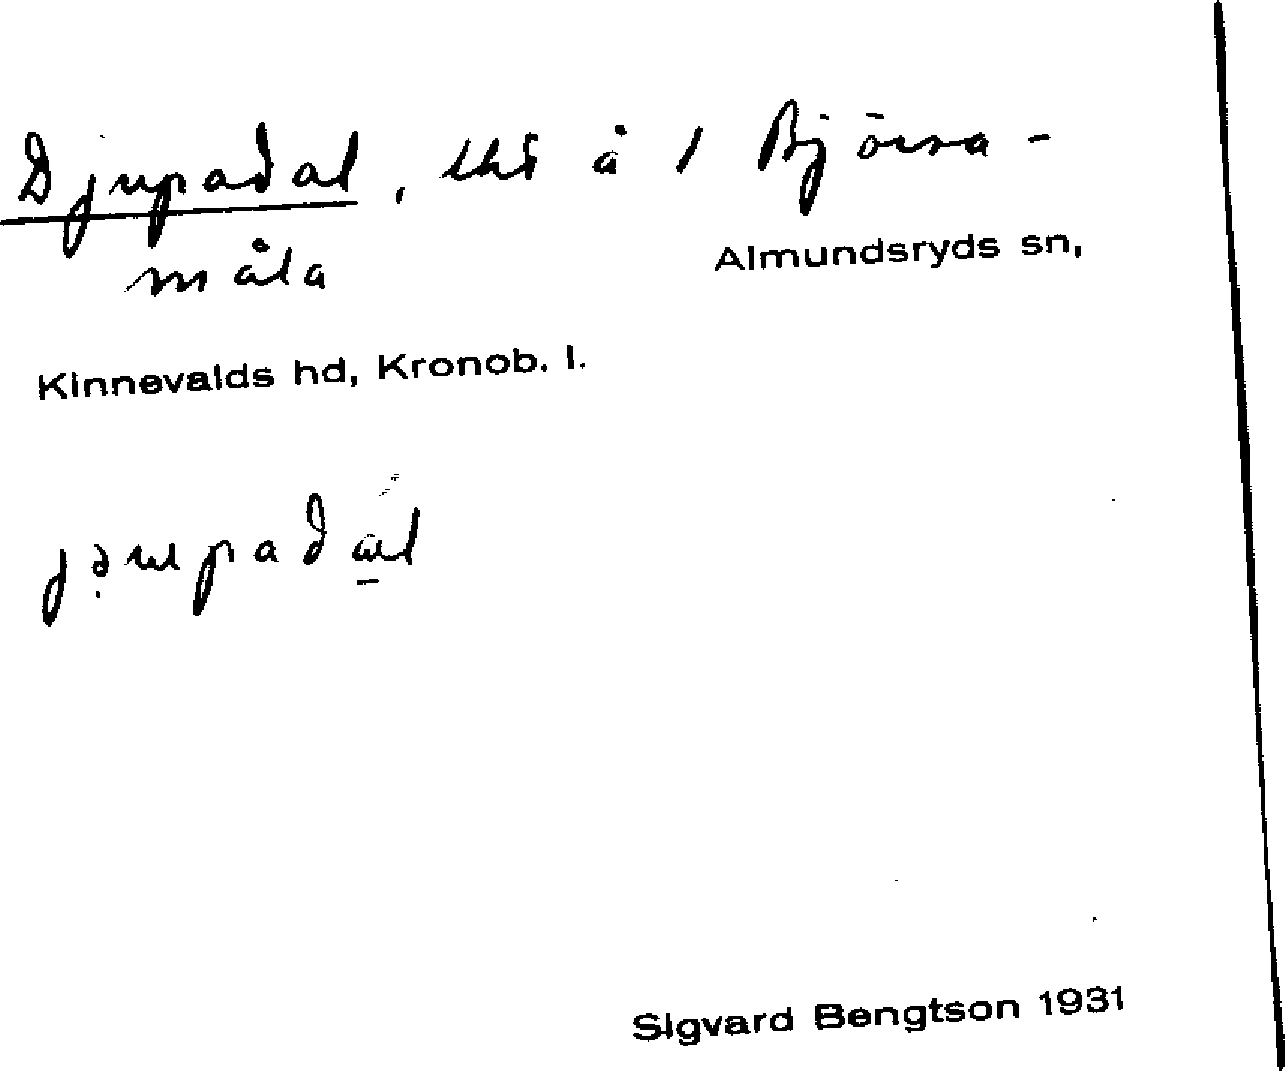 Djupadal, lht å 1 Björsa-
måla
Almundsryds sn,
Kinnevalds hd, Kronob. l.
Sigvard Bengtson 1931